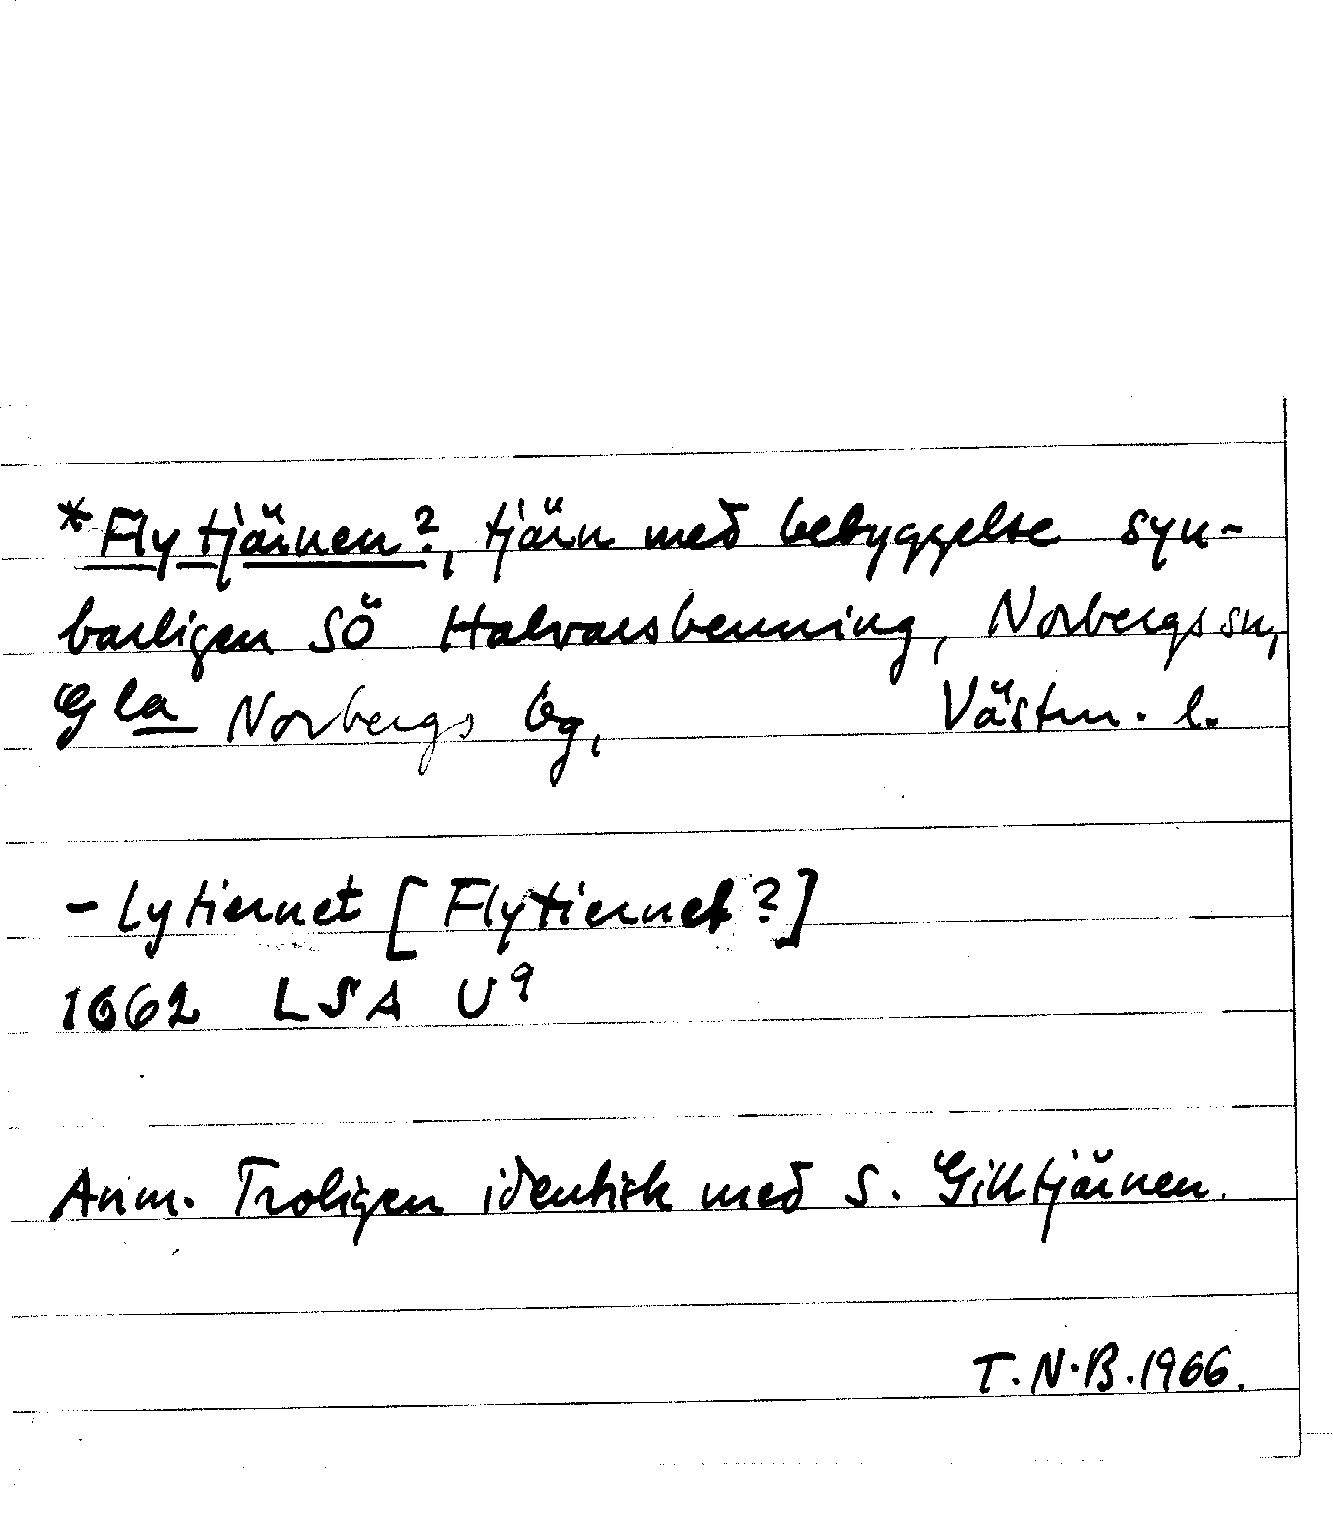 *Flytjärnen?, tjärn med bebyggelse syn-
barligen SÖ Halvarsbenning, Norbergs sn,
Gla Norbergs bg, Västm. l.
- Lytiernet [Flytiernet?]
1662 LSA U9
Anm. Troligen identisk med S. Gilltjärnen.
T.N.B. 1966.